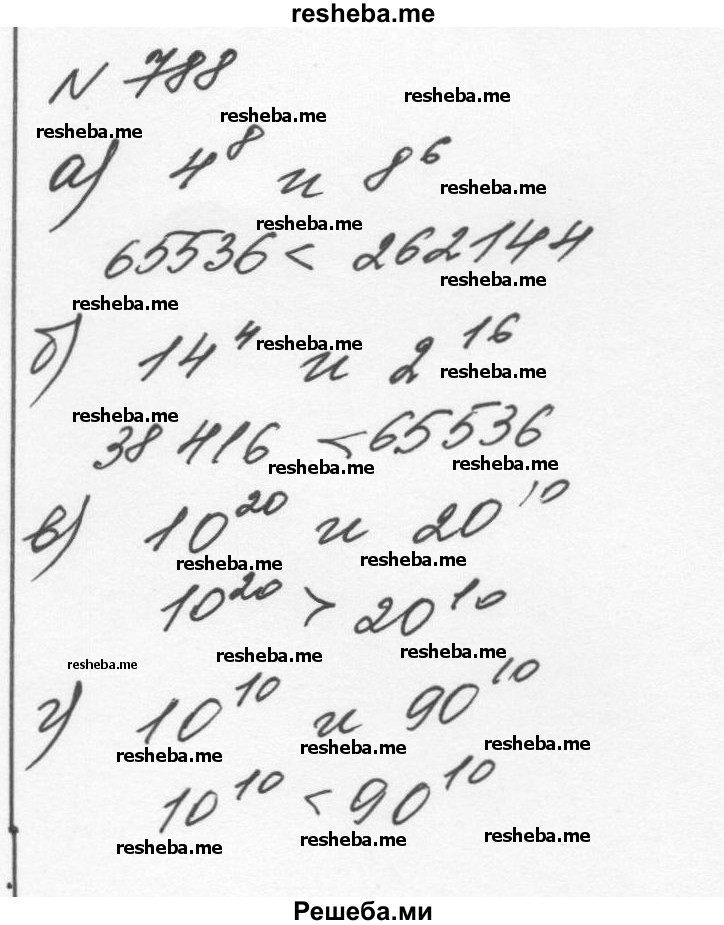 resheba.me
N 788
resheba.me
resheba.me
resheba.me
а) 4^8 и 8^6
resheba.me
resheba.me
65536 < 262144
resheba.me
resheba.me
б) 14^4 и 2^16
resheba.me
resheba.me
resheba.me
38 416 < 65536
resheba.me
resheba.me
в) 10^20 и 20^10
resheba.me
resheba.me
10^20 > 20^10
resheba.me
resheba.me
resheba.me
г) 10^10 и 90^10
resheba.me
resheba.me
resheba.me
10^10 < 90^10
resheba.me
resheba.me
resheba.me
Решеба.ми